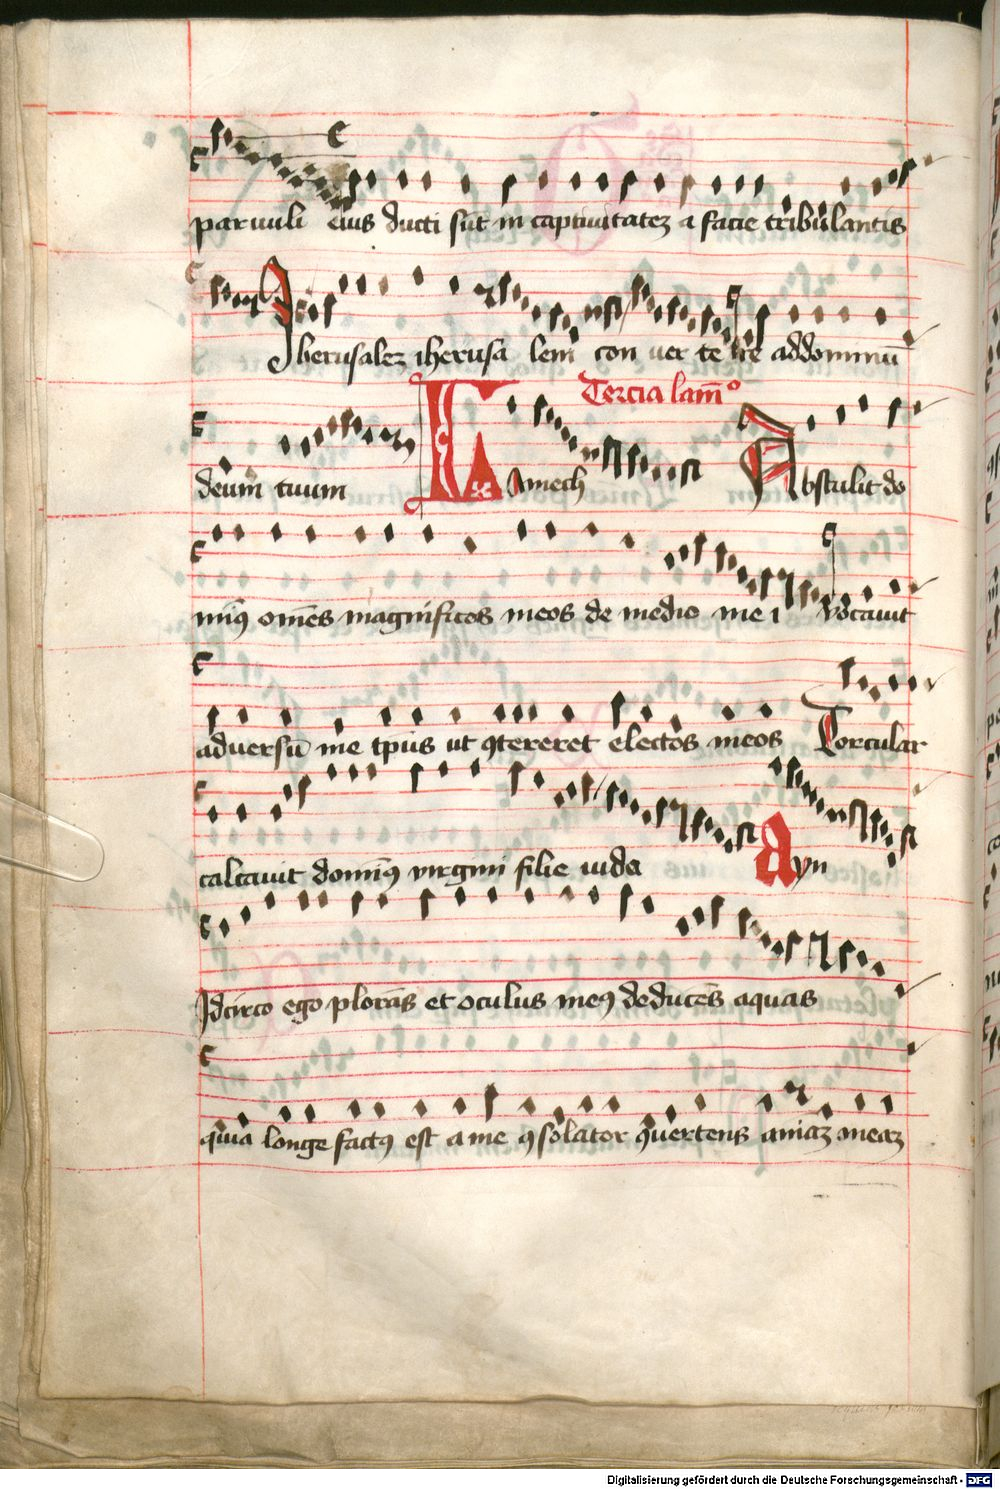 paruuli eius ducti sūt in captiuitatez a facie tribulantis
Jherusalez iherusa lem con uer te re addominū
deum tuum
Tercia lam̄o
Lamech Abstulit do
min9 om̄es magnificos meos de medio me i Vocauit
aduersū me tp̄us ut 9tereret electos meos Torcular
calcauit domin9 virgini filie iuda Ayn
Jdcirco ego plorās et oculus me9 deducēs aquas
quia longe fact9 est a me 9solator 9uertens aniaz meaz
Digitalisierung gefördert durch die Deutsche Forschungsgemeinschaft - DFG